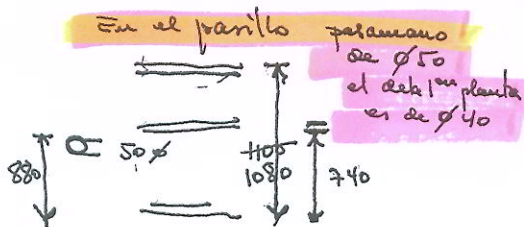 En el pasillo pasamano
de Ø50
el de la 1ª planta
es de Ø40
880
50 Ø
1100
1080
740